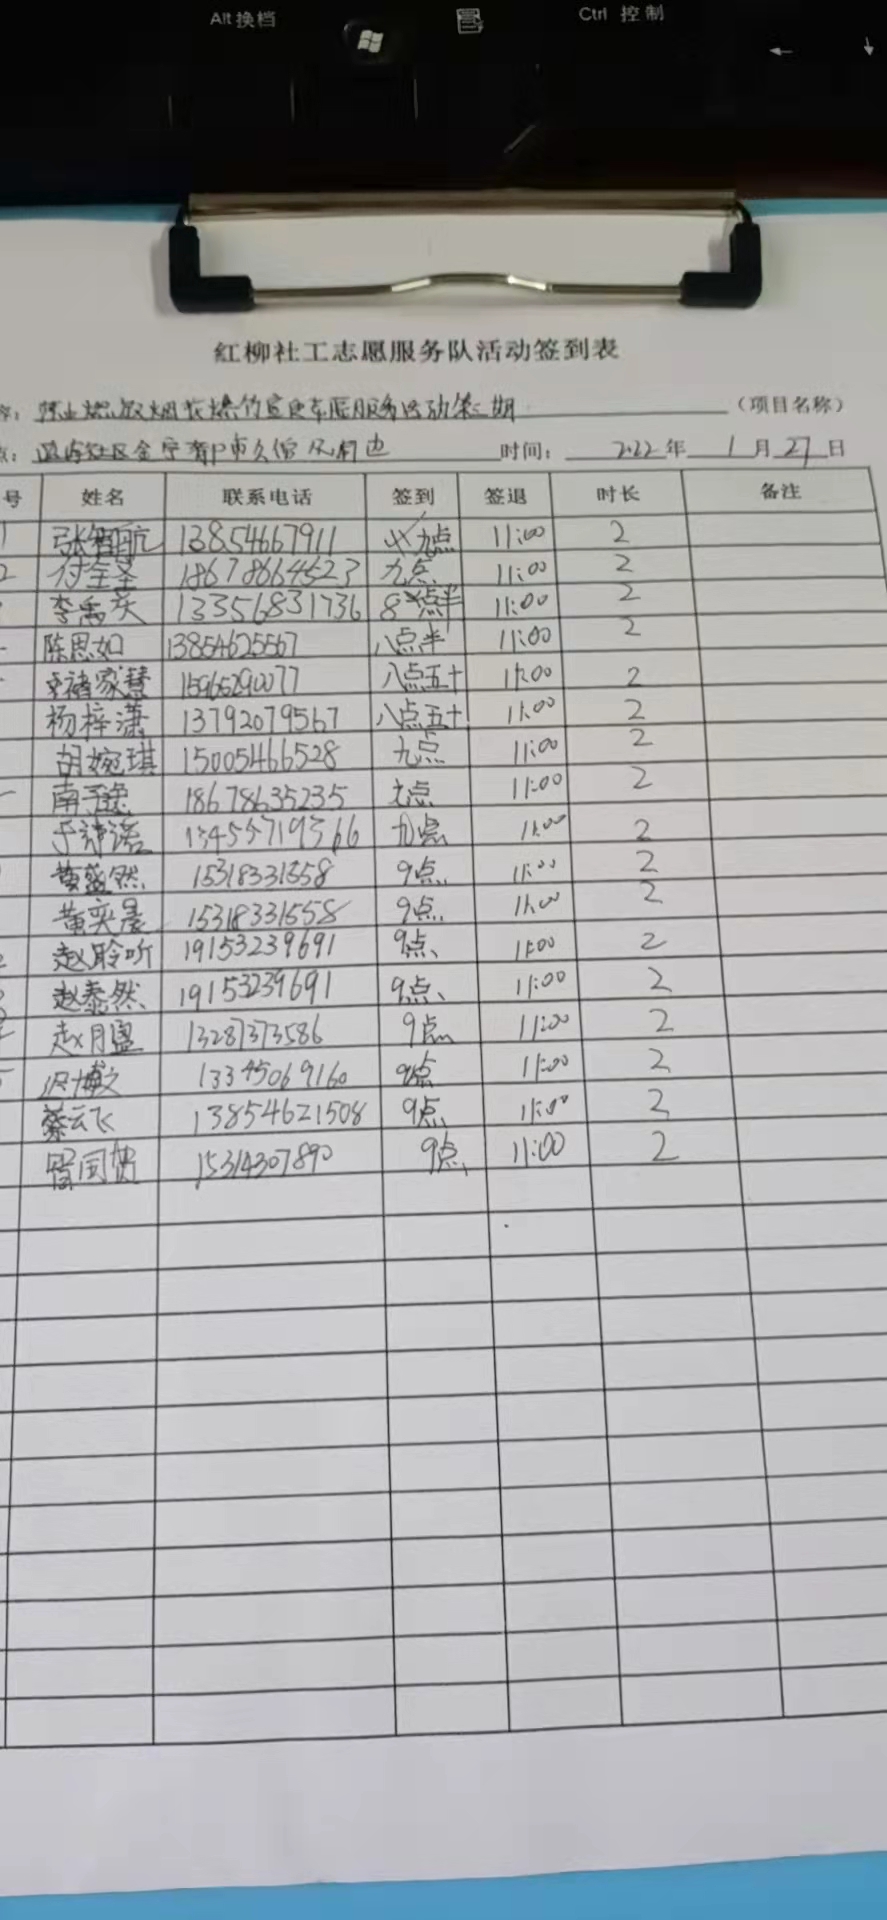 Alt 换档
Ctrl 控制
← ↓
红柳社工志愿服务队活动签到表
禁止燃放烟花爆竹宣传志愿服务活动第二期 (项目名称)
时间: 2022 年 1 月 27 日
号 姓名 联系电话 签到 签退 时长 备注
1 张智航 13854667911 九点 11:00 2
2 付全圣 18678664523 九点 11:00 2
李禹庆 13356831736 8点半 11:00 2
陈思如 13854625567 八点半 11:00 2
褚家慧 15966290077 八点五十 11:00 2
杨梓潇 13792079567 八点五十 11:00 2
胡婉琪 15005466528 九点 11:00 2
南予 18678635235 九点 11:00 2
于诗语 13455719366 九点 11:00 2
黄盛然 15318331558 9点 11:00 2
黄奕晨 15318331558 9点 11:00 2
赵聆听 19153239691 9点 11:00 2
赵泰然 19153239691 9点 11:00 2
赵月盈 13287373586 9点 11:00 2
5 迟博文 13345069160 9点 11:00 2
蔡云飞 13854621508 9点 11:00 2
15314307890 9点 11:00 2